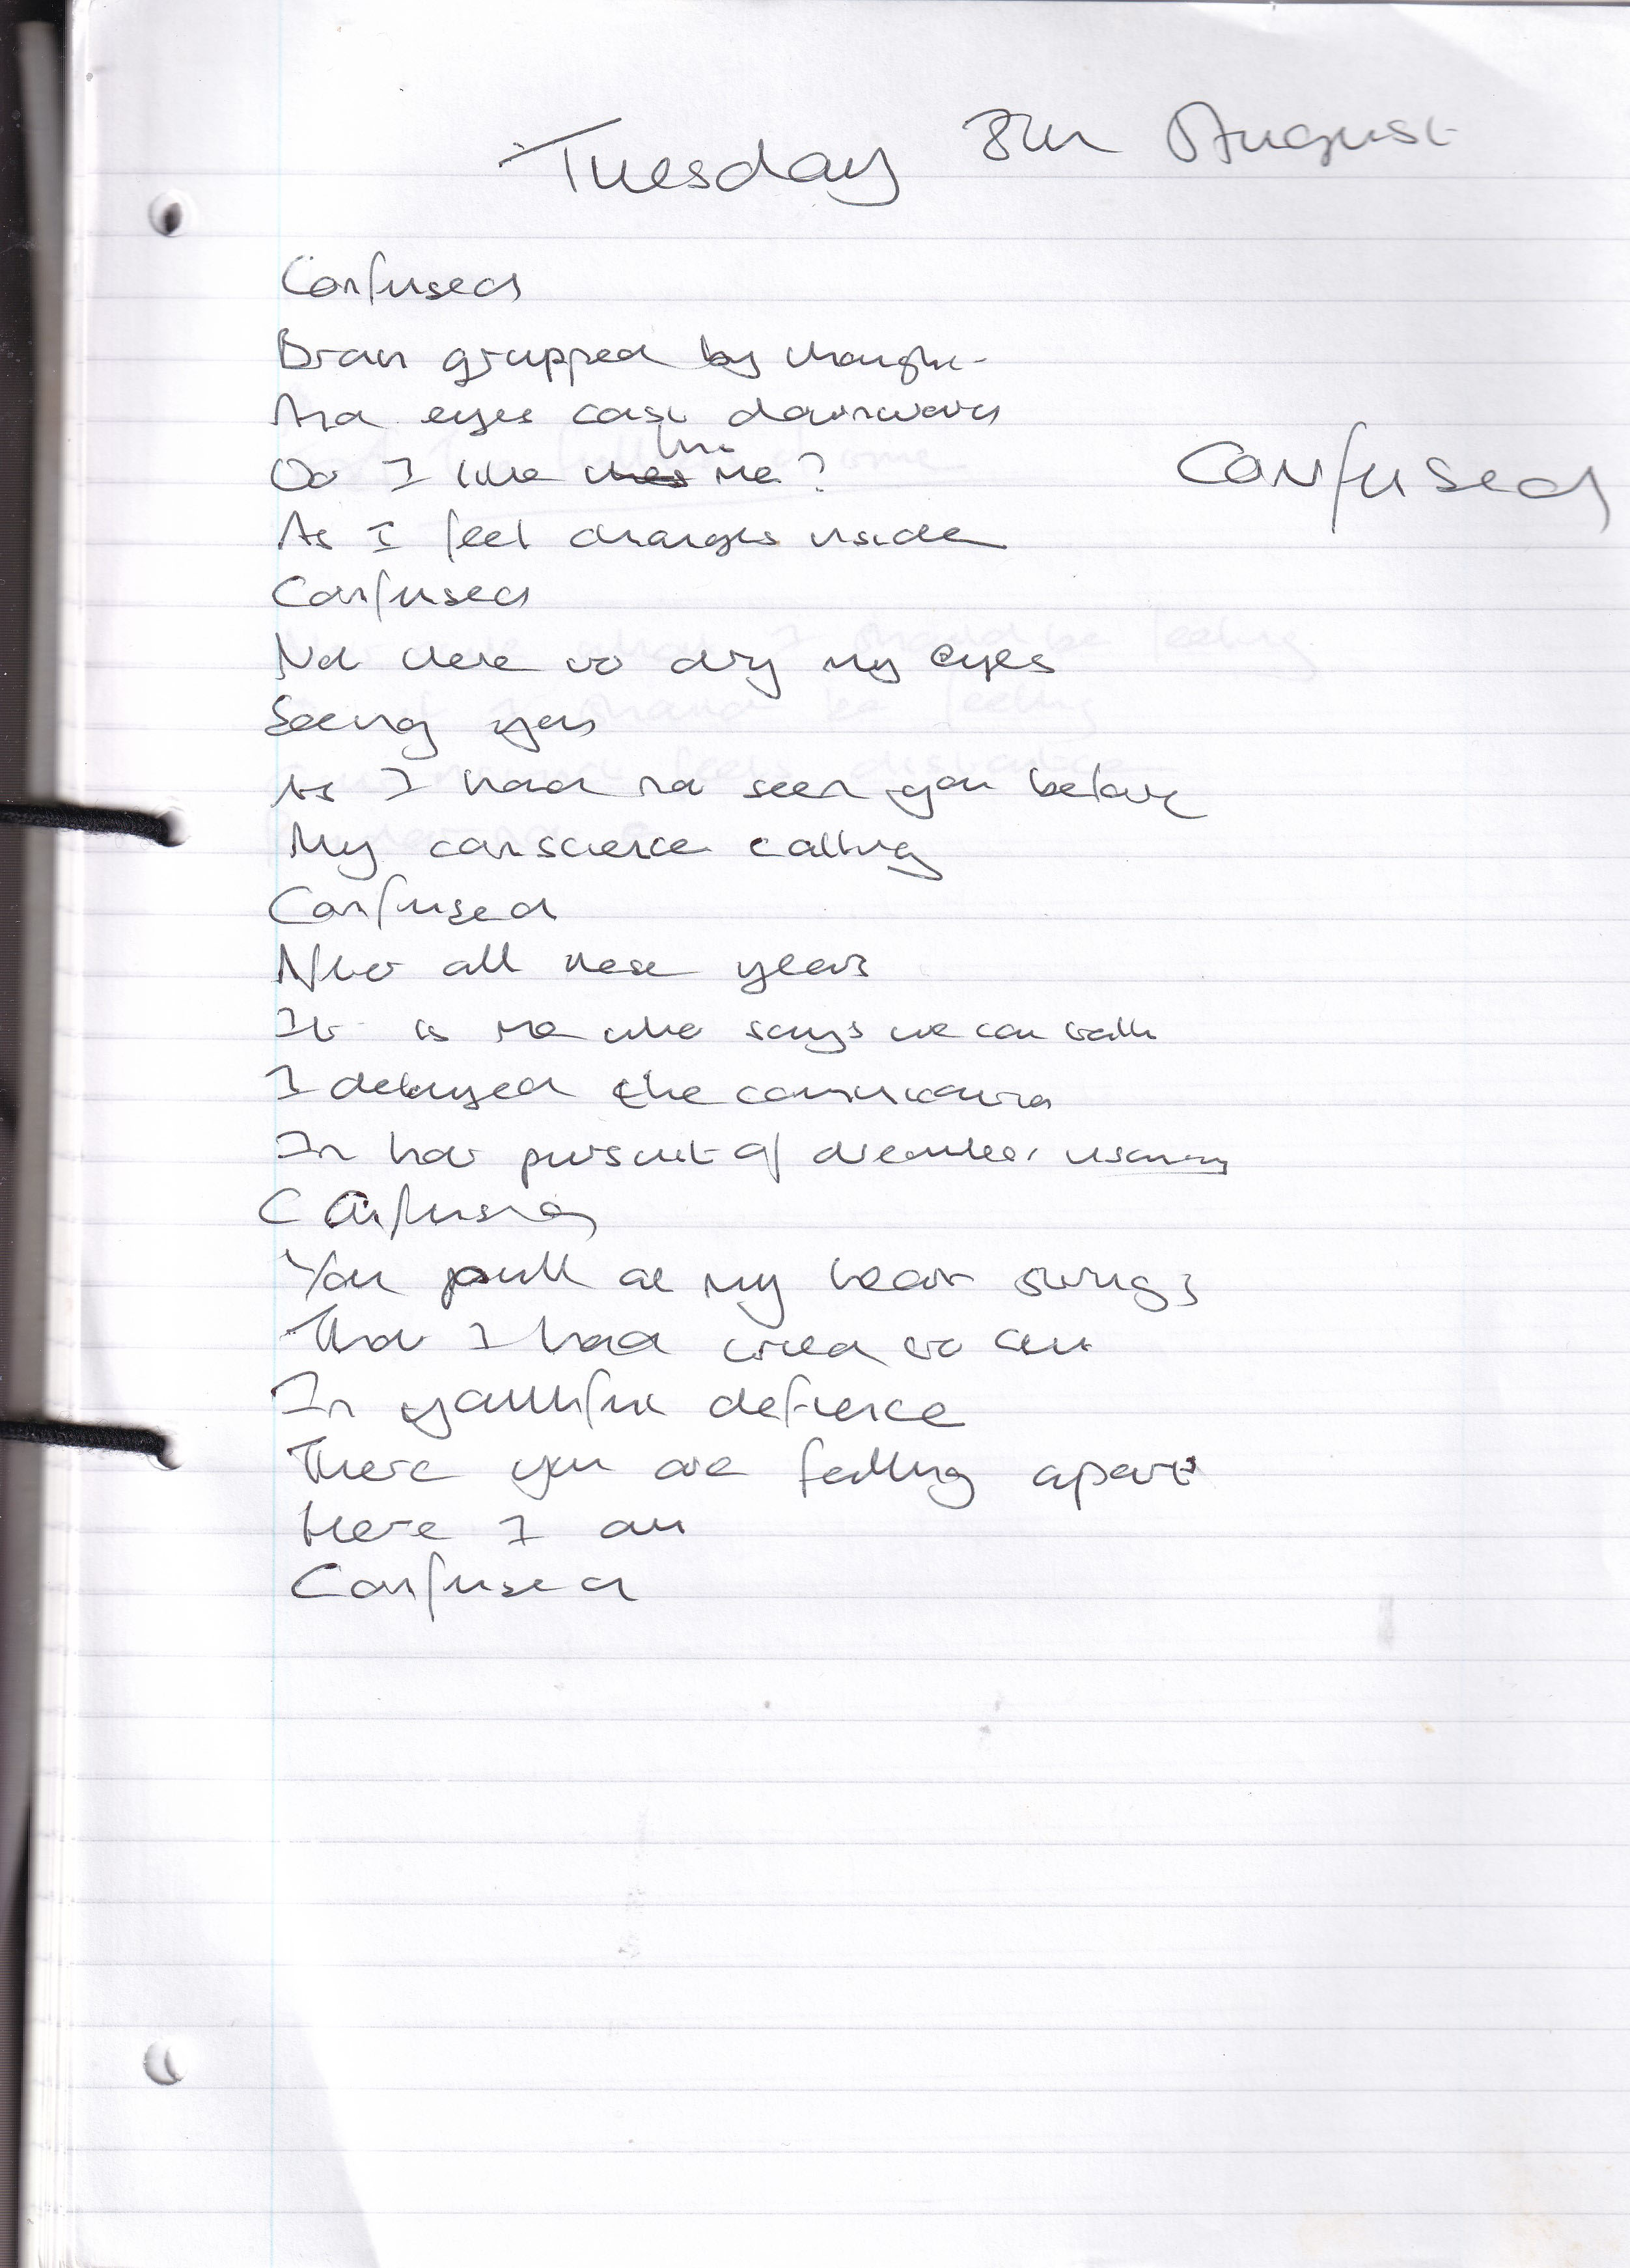 Tuesday 8th August
Confused
Brain gripped by thought
And eyes cast downward
Do I like this me?
Confused
As I feel changes inside
Confused
Not there to dry my eyes
Seeing you
As I had not seen you before
My conscience calling
Confused
After all these years
It is me who says we can talk
I delayed the
In hot pursuit of
Confusion
You pull at my heart strings
That I had tried to cut
In youthful defience
There you are falling apart
Here I am
Confused